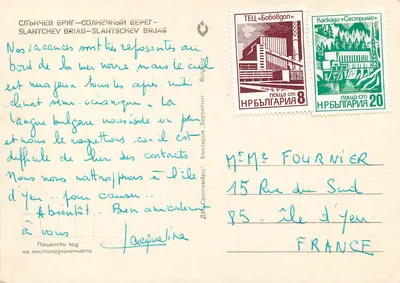 СЛЪНЧЕВ БРЯГ—СОЛНЕЧНЫЙ БЕРЕГ—
SLANTCHEV BRIAG—SLANTSCHEV BRJAG
Nos vacances sont très reposantes au
bord de la mer noire mais le ciel
est nuageux tous les après-midi
climat semi-océanique. La
langue bulgare nous isole un peu
et nous le regrettons car il est
difficile de lier des contacts
Nous nous rattraperons à l'île
d'Yeu .. pour causer..
A bientôt.. Bien amicalement
à vous
Jacqueline
Пощенски код
на местоназначението
ТЕЦ „Бобовдол“
ПОЩА СТ.
НР БЪЛГАРИЯ 8
Каскада „Сестримо“
ПОЩА СТ.
НР БЪЛГАРИЯ 20
M. Me FOURNIER
15 Rue du Sud
85 - île d'Yeu
FRANCE